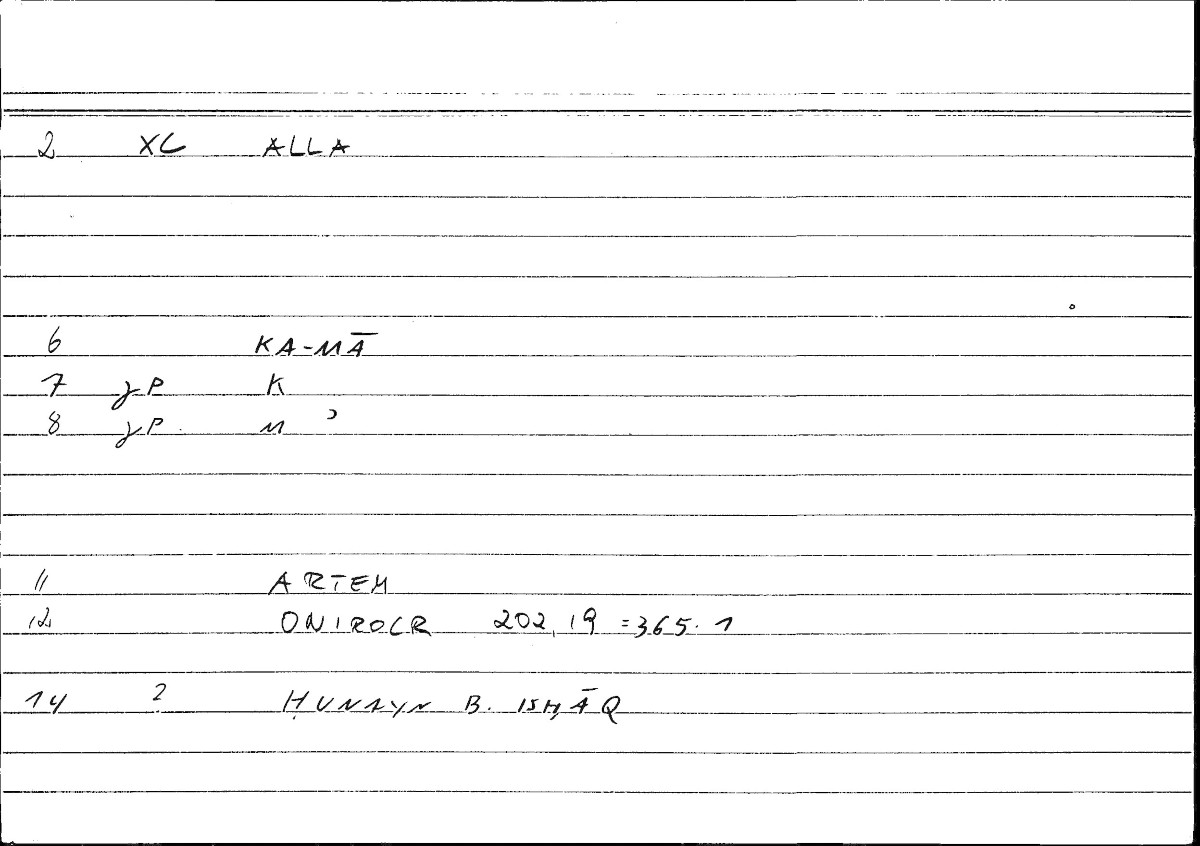 2 XC ALLA
6 KA-MĀ
7 gP K
8 gP. M ʾ
11 ARTEM
12 ONIROCR 202,19 =365.1
14 ? ḤUNAYN B. ISḤĀQ